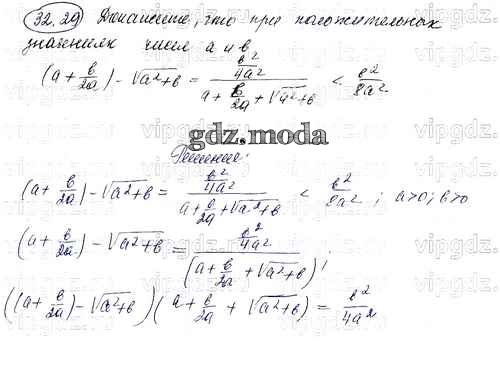 32.29 Докажите, что при положительных
значениях чисел a и b
(a + b/2a) - √a²+b = (b²/4a²)/(a + b/2a + √a²+b) < b²/8a²
gdz.moda
Решение:
(a + b/2a) - √a²+b = (b²/4a²)/(a + b/2a + √a²+b) < b²/8a² ; a>0; b>0
(a + b/2a) - √a²+b = (b²/4a²)/(a + b/2a + √a²+b) ;
((a + b/2a) - √a²+b)(a + b/2a + √a²+b) = b²/4a²